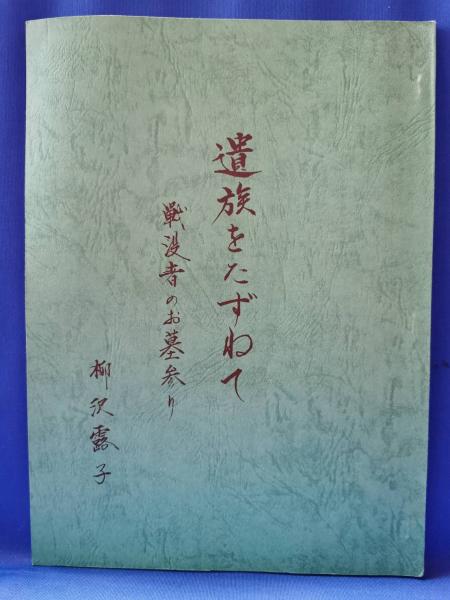 遺族をたずねて
戦没者のお墓参り
柳沢露子